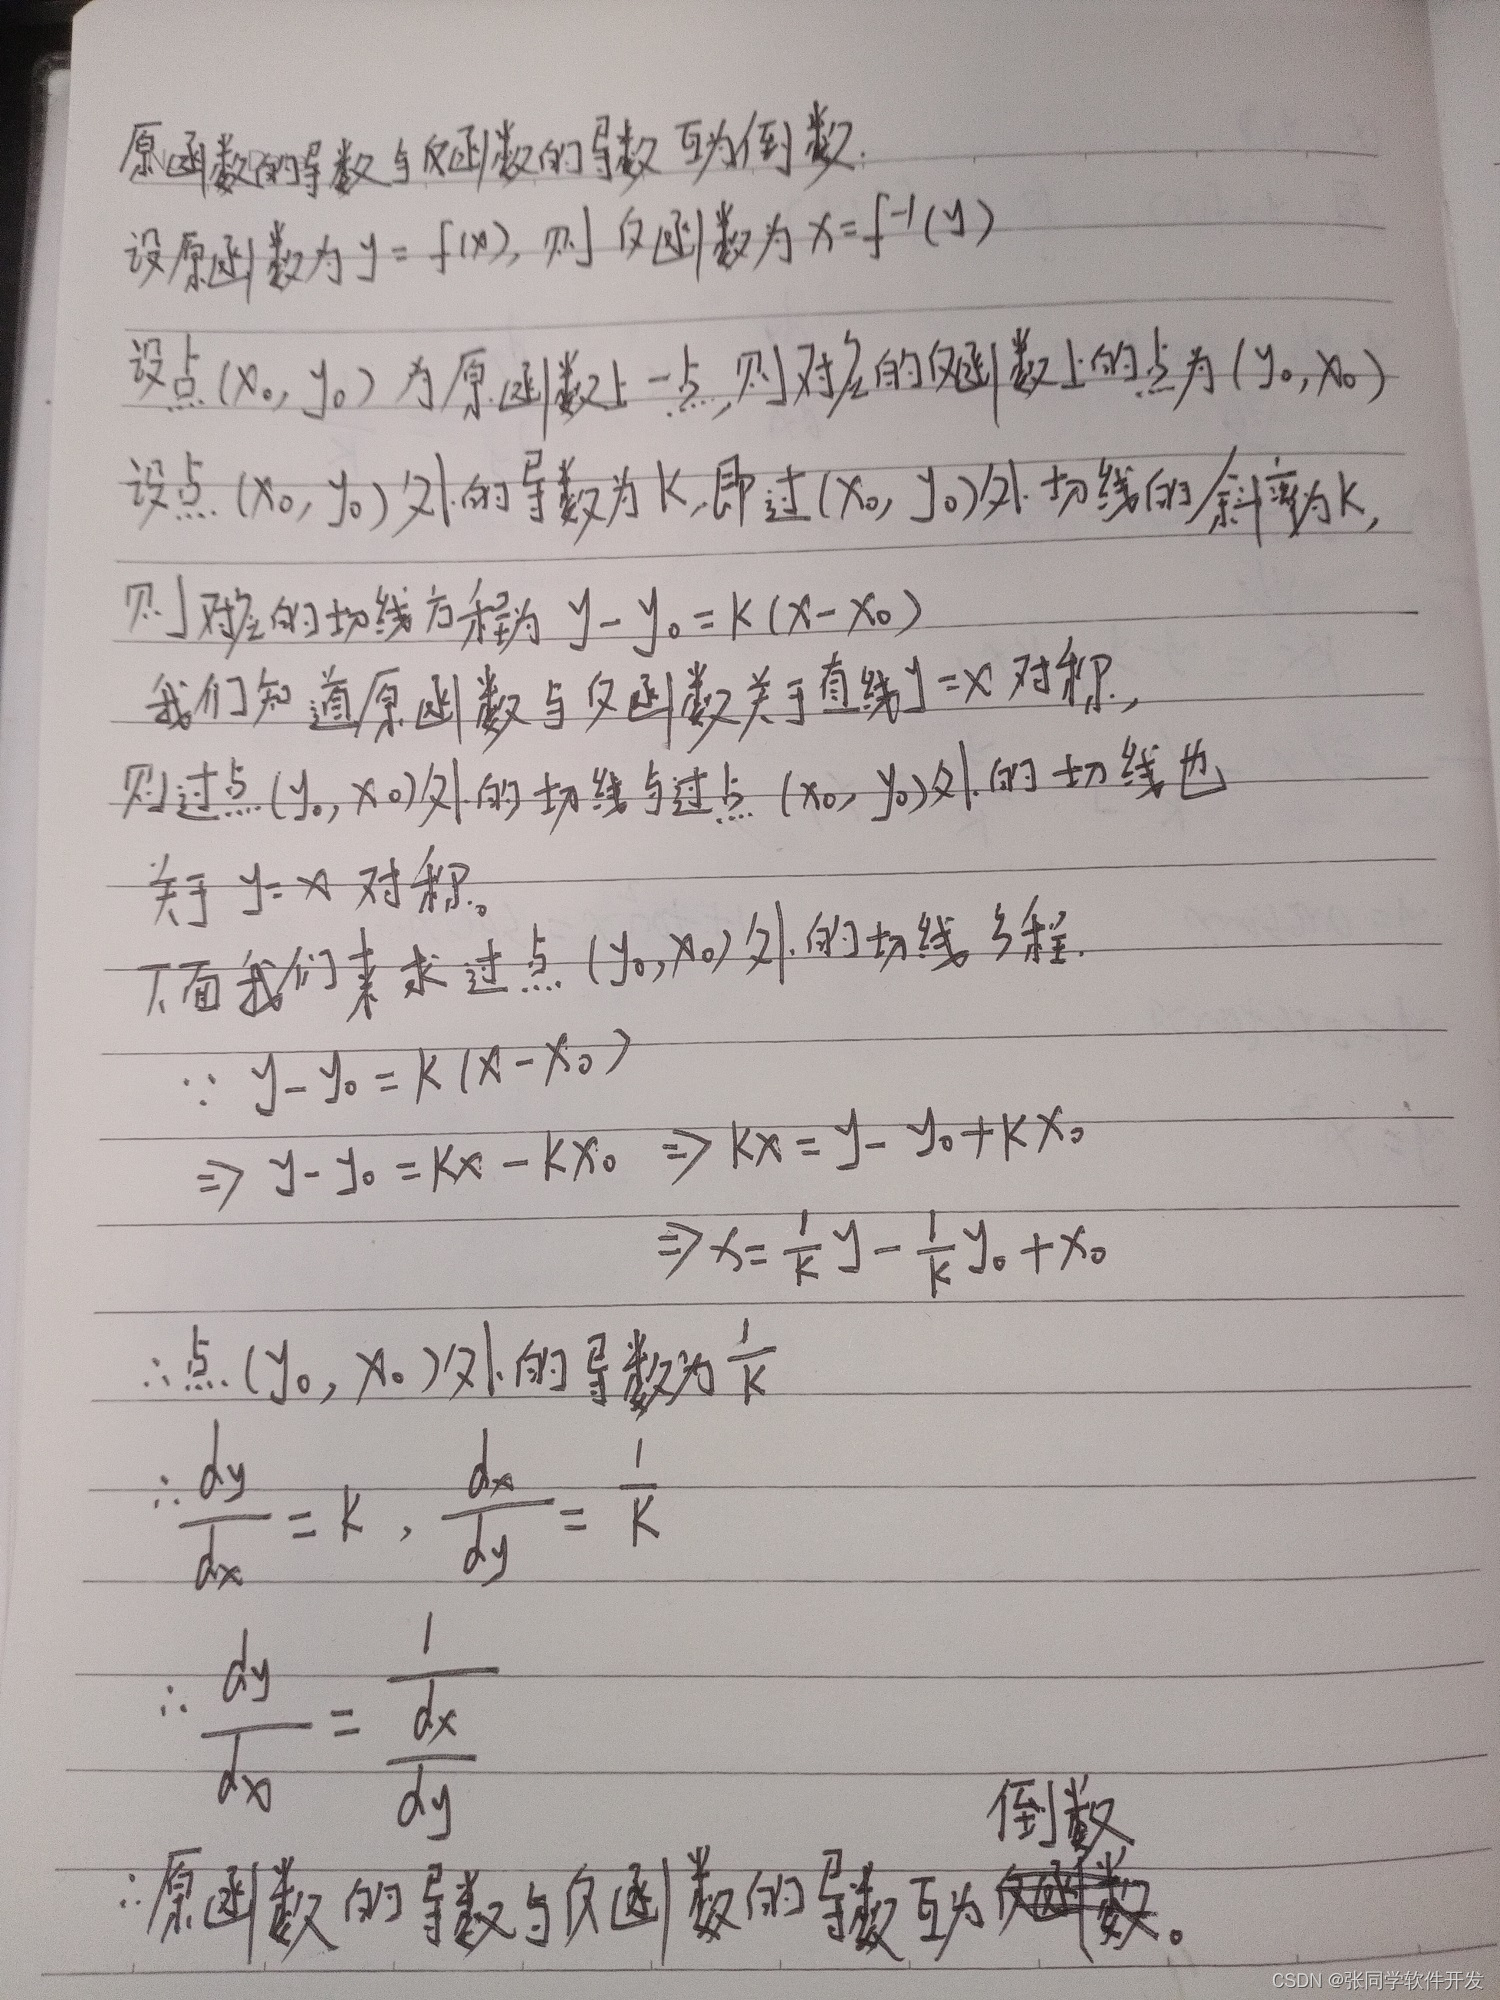 原函数的导数与反函数的导数互为倒数.
设原函数为 y = f(x), 则反函数为 x = f⁻¹(y)
设点 (x₀, y₀) 为原函数上一点, 则对应的反函数上的点为 (y₀, x₀)
设点 (x₀, y₀) 处的导数为 K, 即过 (x₀, y₀) 处切线的斜率为 K,
则对应的切线方程为 y - y₀ = K (x - x₀)
我们知道原函数与反函数关于直线 y = x 对称,
则过点 (y₀, x₀) 处的切线与过点 (x₀, y₀) 处的切线也
关于 y = x 对称。
下面我们来求过点 (y₀, x₀) 处的切线方程.
∵ y - y₀ = K (x - x₀)
⇒ y - y₀ = Kx - Kx₀ ⇒ Kx = y - y₀ + Kx₀
⇒ x = 1/K y - 1/K y₀ + x₀
∴ 点 (y₀, x₀) 处的导数为 1/K
∴ dy/dx = K , dx/dy = 1/K
∴ dy/dx = 1/(dx/dy)
倒数
∴ 原函数的导数与反函数的导数互为反函数。
CSDN @张同学软件开发